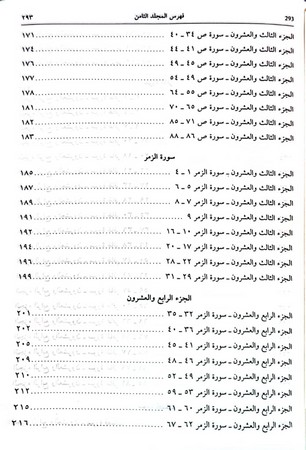 293 فهرس المجلد الثامن ٢٩٣
الجزء الثالث والعشرون ـ سورة ص ٣٤ ـ ٤٠ ١٧١
الجزء الثالث والعشرون ـ سورة ص ٤١ ـ ٤٤ ١٧٤
الجزء الثالث والعشرون ـ سورة ص ٤٥ ـ ٤٩ ١٧٦
الجزء الثالث والعشرون ـ سورة ص ٤٩ ـ ٥٤ ١٧٧
الجزء الثالث والعشرون ـ سورة ص ٥٥ ـ ٦٤ ١٧٨
الجزء الثالث والعشرون ـ سورة ص ٦٥ ـ ٧٠ ١٨١
الجزء الثالث والعشرون ـ سورة ص ٧١ ـ ٨٥ ١٨٢
الجزء الثالث والعشرون ـ سورة ص ٨٦ ـ ٨٨ ١٨٣
سورة الزمر
الجزء الثالث والعشرون ـ سورة الزمر ١ ـ ٤ ١٨٥
الجزء الثالث والعشرون ـ سورة الزمر ٥ ـ ٦ ١٨٧
الجزء الثالث والعشرون ـ سورة الزمر ٧ ـ ٨ ١٨٩
الجزء الثالث والعشرون ـ سورة الزمر ٩ ١٩١
الجزء الثالث والعشرون ـ سورة الزمر ١٠ ـ ١٦ ١٩٢
الجزء الثالث والعشرون ـ سورة الزمر ١٧ ـ ٢٠ ١٩٤
الجزء الثالث والعشرون ـ سورة الزمر ٢٢ ـ ٢٨ ١٩٦
الجزء الثالث والعشرون ـ سورة الزمر ٢٩ ـ ٣١ ١٩٩
الجزء الرابع والعشرون
الجزء الرابع والعشرون ـ سورة الزمر ٣٢ ـ ٣٥ ٢٠١
الجزء الرابع والعشرون ـ سورة الزمر ٣٦ ـ ٤٠ ٢٠٢
الجزء الرابع والعشرون ـ سورة الزمر ٤١ ـ ٤٥ ٢٠٥
الجزء الرابع والعشرون ـ سورة الزمر ٤٦ ـ ٤٨ ٢٠٩
الجزء الرابع والعشرون ـ سورة الزمر ٤٩ ـ ٥٢ ٢١٠
الجزء الرابع والعشرون ـ سورة الزمر ٥٣ ـ ٥٩ ٢١٢
الجزء الرابع والعشرون ـ سورة الزمر ٦٠ ـ ٦١ ٢١٥
الجزء الرابع والعشرون ـ سورة الزمر ٦٢ ـ ٦٧ ٢١٦